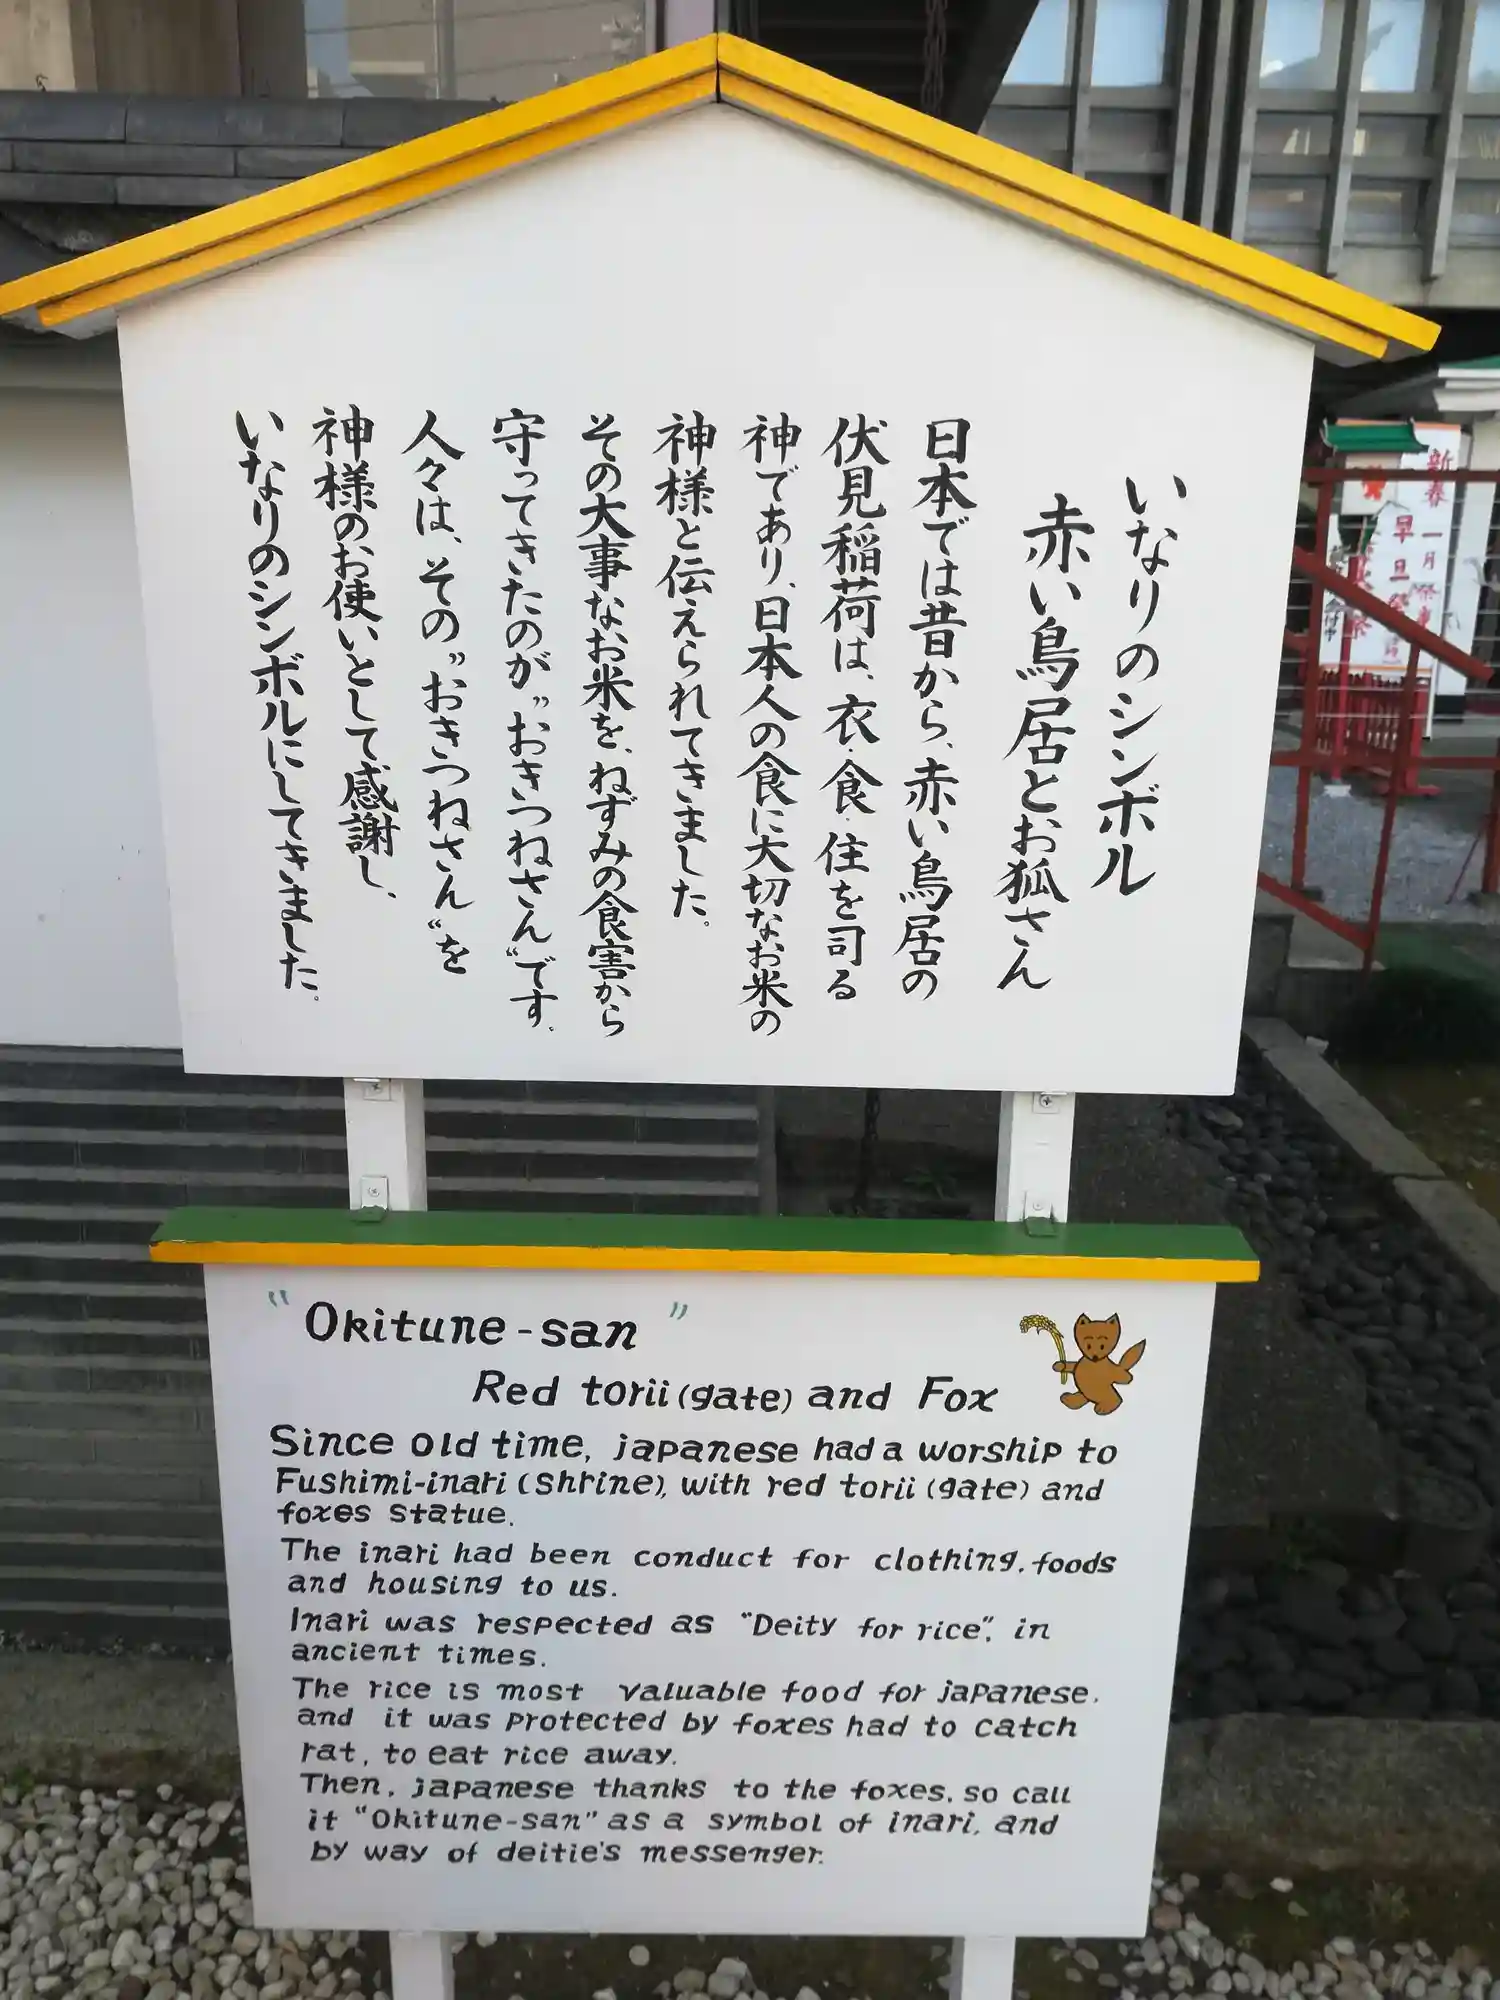 いなりのシンボル
赤い鳥居とお狐さん
日本では昔から、赤い鳥居の
伏見稲荷は、衣・食・住を司る
神であり、日本人の食に大切なお米の
神様と伝えられてきました。
その大事なお米を、ねずみの食害から
守ってきたのが〝おきつねさん〟です。
人々は、その〝おきつねさん〟を
神様のお使いとして感謝し、
いなりのシンボルにしてきました。
"Okitune-san"
Red torii (gate) and Fox
Since old time, japanese had a worship to
Fushimi-inari (Shrine), with red torii (gate) and
foxes statue.
The inari had been conduct for clothing, foods
and housing to us.
Inari was respected as "Deity for rice", in
ancient times.
The rice is most valuable food for japanese,
and it was protected by foxes had to catch
rat, to eat rice away.
Then, japanese thanks to the foxes, so call
it "Okitune-san" as a symbol of inari, and
by way of deitie's messenger.
新春
一月
早旦祭